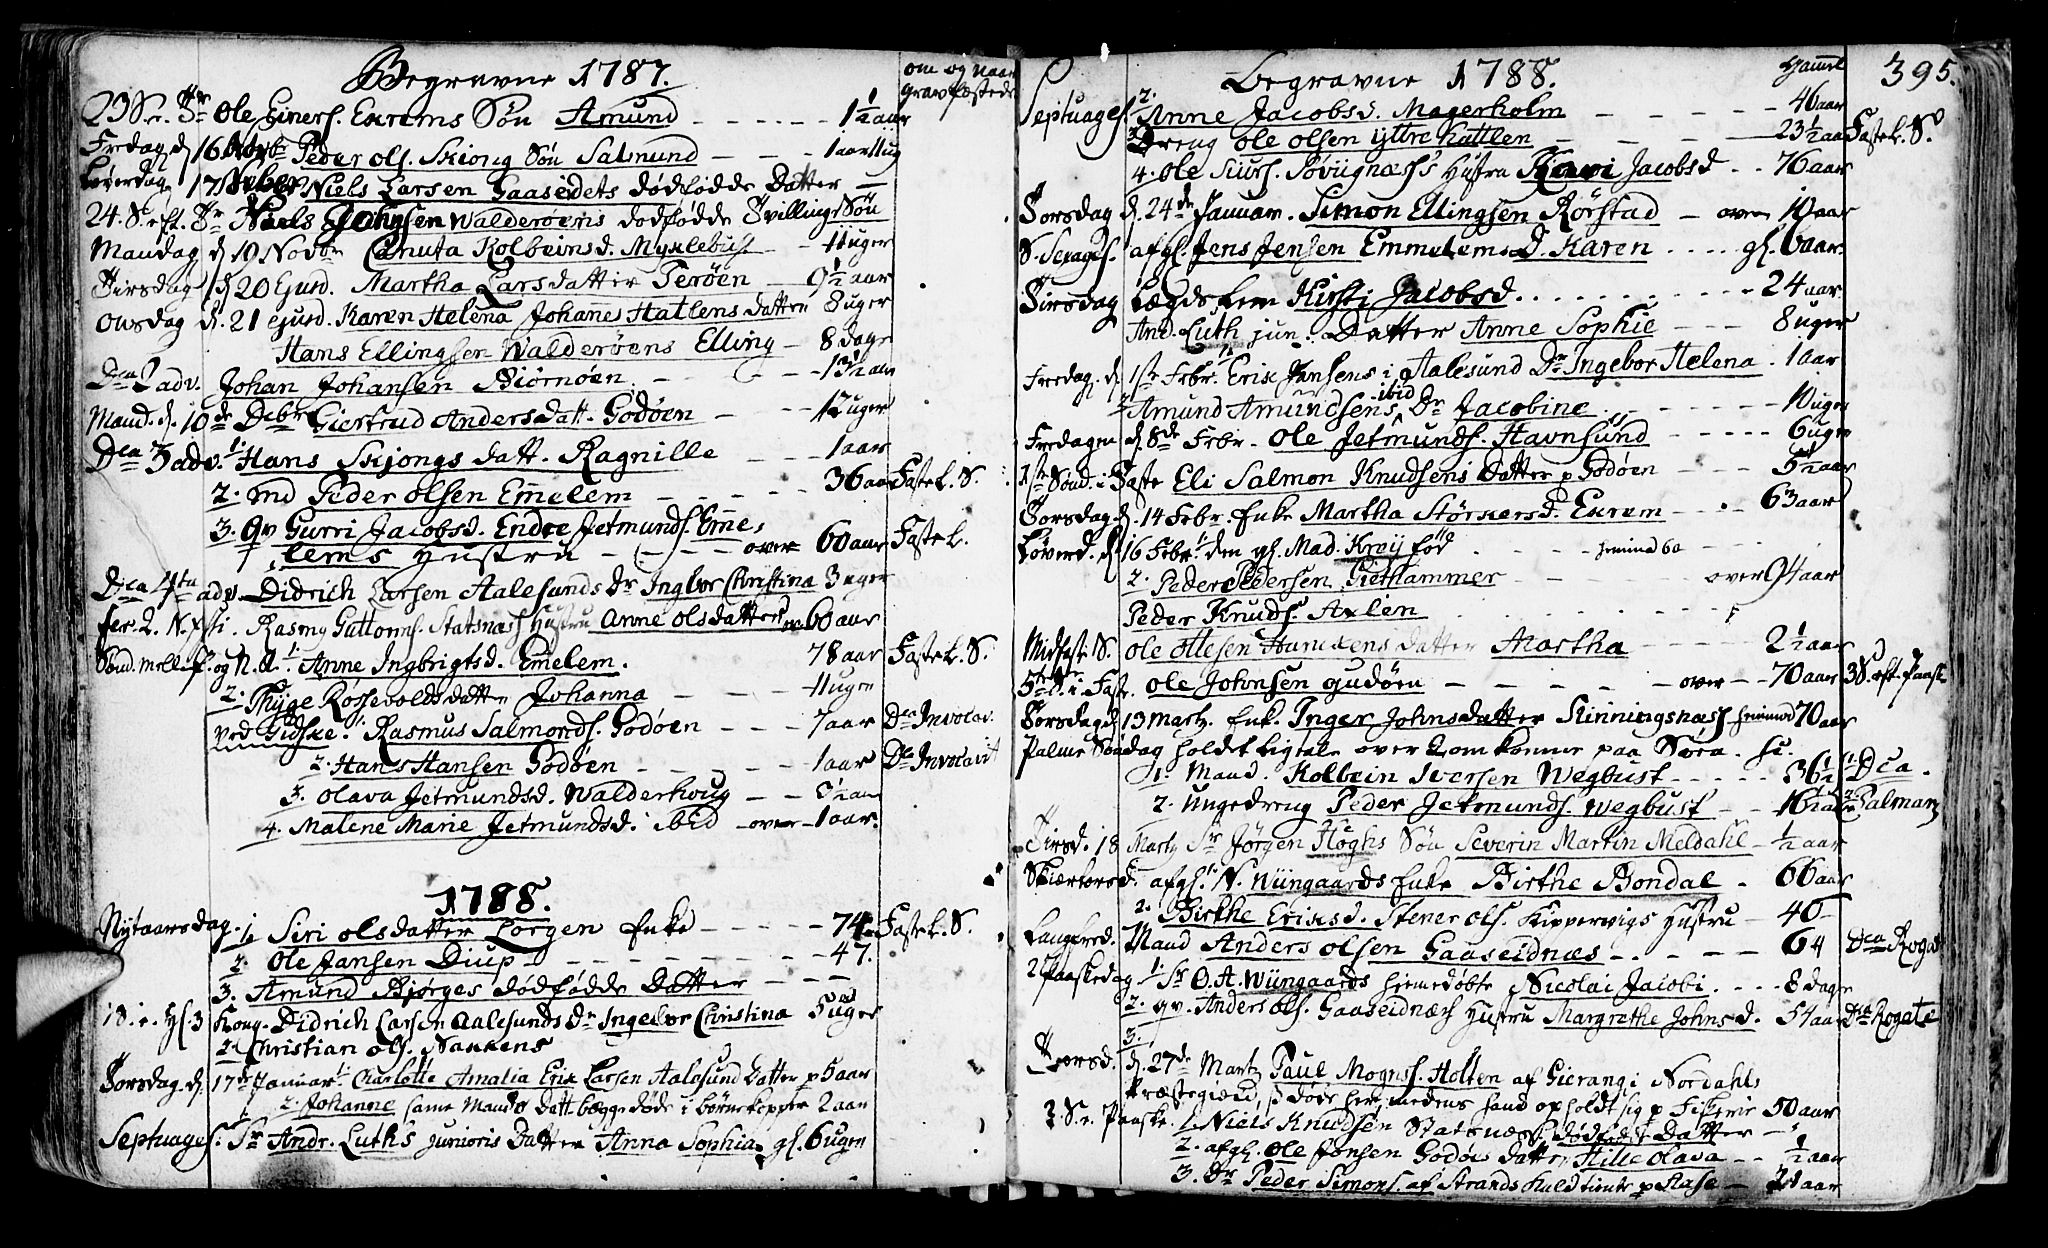 Begravne 1787.
om og naar
Gravfæstede
23 S. e. Tr Ole Einers. Exrems Søn Amund - - - 1½ aar
Fredag d 16 Peder Ols. Skiong Søn Salmund - - - 1 aar 11 ug
Løverdag 17 Niels Larsen Gaaseidets dødfødde Datter -
24. S. eft. Tr Niels Johnsen Walderøens dødfødde Tvilling Søn
Mandag d 19 Novbr Cnuta Kolbeinsd. Myklebust - - 11 uger
Tirsdag d 20 Ejusd. Martha Larsdatter Perøen - 9½ aar
Onsdag d. 21 ejusd. Karen Helena Johannes Hatlens datter 8 uger
Hans Ellingsen Walderøens Elling - 8 dage
Dca 2 adv. Johan Johansen Biørnøen. - - 13½ aar
Mand. d. 10de Debr Giertrud Andersdatt. Godøen - - 12 uger
Dca 3 adv. 1. Hans Skjongs datt. Ragnille - - 1 aar
2. md Peder Olsen Emelem - - - 36 aar Fastel. S.
3. Qv Gurri Jacobsd. Endre Jetmunds. Eme,
lems Hustru - - - over 60 aar Fastel.
Dca 4ta adv. Didrich Larsen Aalesunds Dr Ingbor Christina 3 uger
fer. 2. N. Xsti. Rasmus Guttorms. Statsnæs Hustru Anne Olsdatter 60 aar
Sønd. mell. J. og N. A. 1. Anne Ingbrigtsd. Emelem. 78 aar Fastel. S.
2. Thyge Rossevolds datter Johanna - - - 11 uger
ved Gidske. 1. Rasmus Salmonds. Godøen - - - 7 aar Dca Invocav.
2. Hans Hansen Godøen - - - 1 aar Dca Invocavit
3. Olava Jetmundsd. Walderhoug - - ½ aar
4. Malene Marie Jetmundsd. ibid - over - 1 aar.
1788.
Nytaarsdag. 1. Siri Olsdatter Lorgen Enke - - - 74 Fastel. S.
2. Ole Jansen Diup - - - 47.
3. Amund Bjørges dødfødde Datter - -
18. Didrich Larsen Aalesunds Dr Ingebor Christina 5 uger
2. Christian Ols. Nakkens
Torsdag. d. 17de Januar 1. Charlotte Amalia Erik Larsen Aalesund Datter p 5 aar
2. Johanne samme Mands Datt. begge døde i børnekopper 2 aar
Septuages. Sr Andr. Luth's junioris Datter Anna Sophia gl. 6 uger
Begravne 1788. Gammel 395.
Septuages. 2. Anne Jacobsd. Magerholm - - - 46 aar
3. Dreng Ole Olsen Yttre Hatlen - - - 23½ aar Fastel. S.
4. Ole Siurs. Søvignæs's Hustru Kari Jacobsd - - 76 aar
Torsdag d. 24de Januar. Simon Ellingsen Rørstad - over 10 aar
S. Sexages. afgl. Jens Jensen Emmelems D. Karen - - - gl. 6 aar.
Tirsdag Lægdslem Kirsti Jacobsd. - - - 24 aar
And. Luth jun. Datter Anne Sophie - - - 8 uger
Fredag. d. 1ste Febr. 1. Erik Jansens i Aalesund Dr Ingebor Helena. 1 aar
2. Amund Amundsens ibid Dr Jacobine - - - 10 uger
Fredagen d. 8de Febr. Ole Jetmunds. Havnsund - - - 6 uger
1ste Sønd. i Faste Eli Salmon Knudsens Datter p Godøen - - - 5½ aar
Torsdag d. 14 Febr. Enke Martha Størkersd. Exrem - - - 63 aar
Løverd. d. 16 Febr. 1. den gl. Mad. Krøij fød
2. Peder Pedersen Giethammer - - - over 94 aar
Peder Knuds. Axlen
Midfaste S. Ole Ottesen Humlens datter Martha - - - 2½ aar
5te S. i Faste. Ole Johnsen Gudøen - - - over - 70 aar 3 S. eft. Paaske
Torsdag d 13 Martz. Enke. Inger Johnsdatter Skinningsnæs 70 aar
Palme Søndag holdt Ligtale over 2 omkomne paa Søen.
1. Mand. Kolbein Iversen Wegbust - - - 36½ 1. Dca.
2. Ungedreng Peder Jetmunds. Wegbust - - 16½ aar 2. Palmar.
Tirsd. 18 Martz Sr Jørgen Høghs Søn Severin Martin Meldahl - ½ aar
Skiærtorsd. afgl. N. Wiingaards Enke Birthe Bondal - 66 aar
2. Birthe Eriksd. Stener Ols. Kippervigs Hustru - 40 -
Langfred. Mand Anders Olsen Gaaseidnæs - - - 64 Dca Rogat
2 Paaskedag 1. Sr O. A. Wiingaards hjemedøbte Nicolai Jacobi - - - 8 dage
2. qv. Anders Ols. Gaaseidnæs Hustru Margrethe Johnsd. 54 aar Dca Rogate
3.
Torsd. d. 27de Martz Paul Mogns. Holten af Gierang i Nordahls
Præstegield, døde her medens hand opholdt sig p Fiskerie 50 aar
2. S. e. Paaske. 1. Niels Knudsen Statsnæs dødfødt Datter - "
2. afgl. Ole Jonsen Godøe datter Hille Olava - - ½ aar
3. Dr Peder Simons. af Strands Kald tiente p Aase - 21 aar